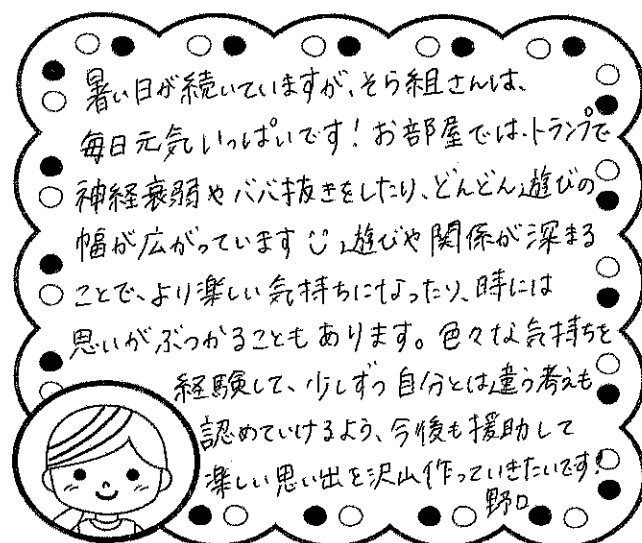 暑い日が続いていますが、そら組さんは、
毎日元気いっぱいです！お部屋では、トランプで
神経衰弱やババ抜きをしたり、どんどん遊びの
幅が広がっています 遊びや関係が深まる
ことで、より楽しい気持ちになったり、時には
思いがぶつかることもあります。色々な気持ちを
経験して、少しずつ自分とは違う考えも
認めていけるよう、今後も援助して
楽しい思い出を沢山作っていきたいです！
野口